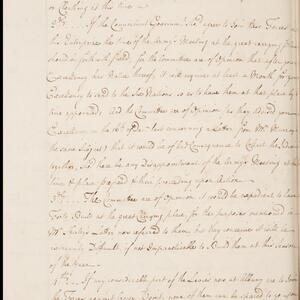 or Clothing it this time
2dly If the Government Governmt shall agree to Join their Forces in
the Enterprize the time of the Army's Meeting at the great carrying place
should be forthwith fixed, for the Committee are of Opinion that after your
Excellency has Notice thereof, it will require at least a Month for your
Excellency to send to the Six Nations so as to have them at that place by
time appointed; And the Committee are of Opinion (as they advised your
Excellency on the 16th of Decr last concerning a Letter from Mr Murray on
the same Subject) that it would be of bad Consequence to Collect the Indians
together, shod there be any Disappointment of the Army's Meeting at the
time & place agreed & their proceeding upon Action
3dly The Committee are of Opinion it would be expedient to have
Forts Built at the great Carrying place, for the purposes mentioned in
Mr Letter now referred to them, but they conceive it will be
extremely Difficult if not Impracticable to Build them at this Season
of the Year
4thly If any considerable part of the Levies now at Albany are to
the Forces against Crown Point, none of them can be spared to go